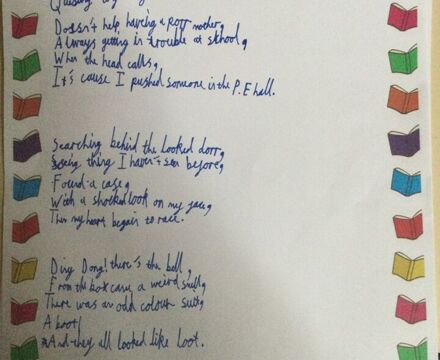 Doesn't help, having a poor mother,
Always getting in trouble at school,
When the head calls,
It's cause I pushed someone in the P.E hall.
Searching behind the looked dorr,
Seeing thing I haven't seen before,
Found a case,
With a shocked look on my face,
Then my heart began to race.
Ding Dong! there's the bell,
From the box came a weird smell,
There was an odd colour suit,
A boot!
And they all looked like loot.